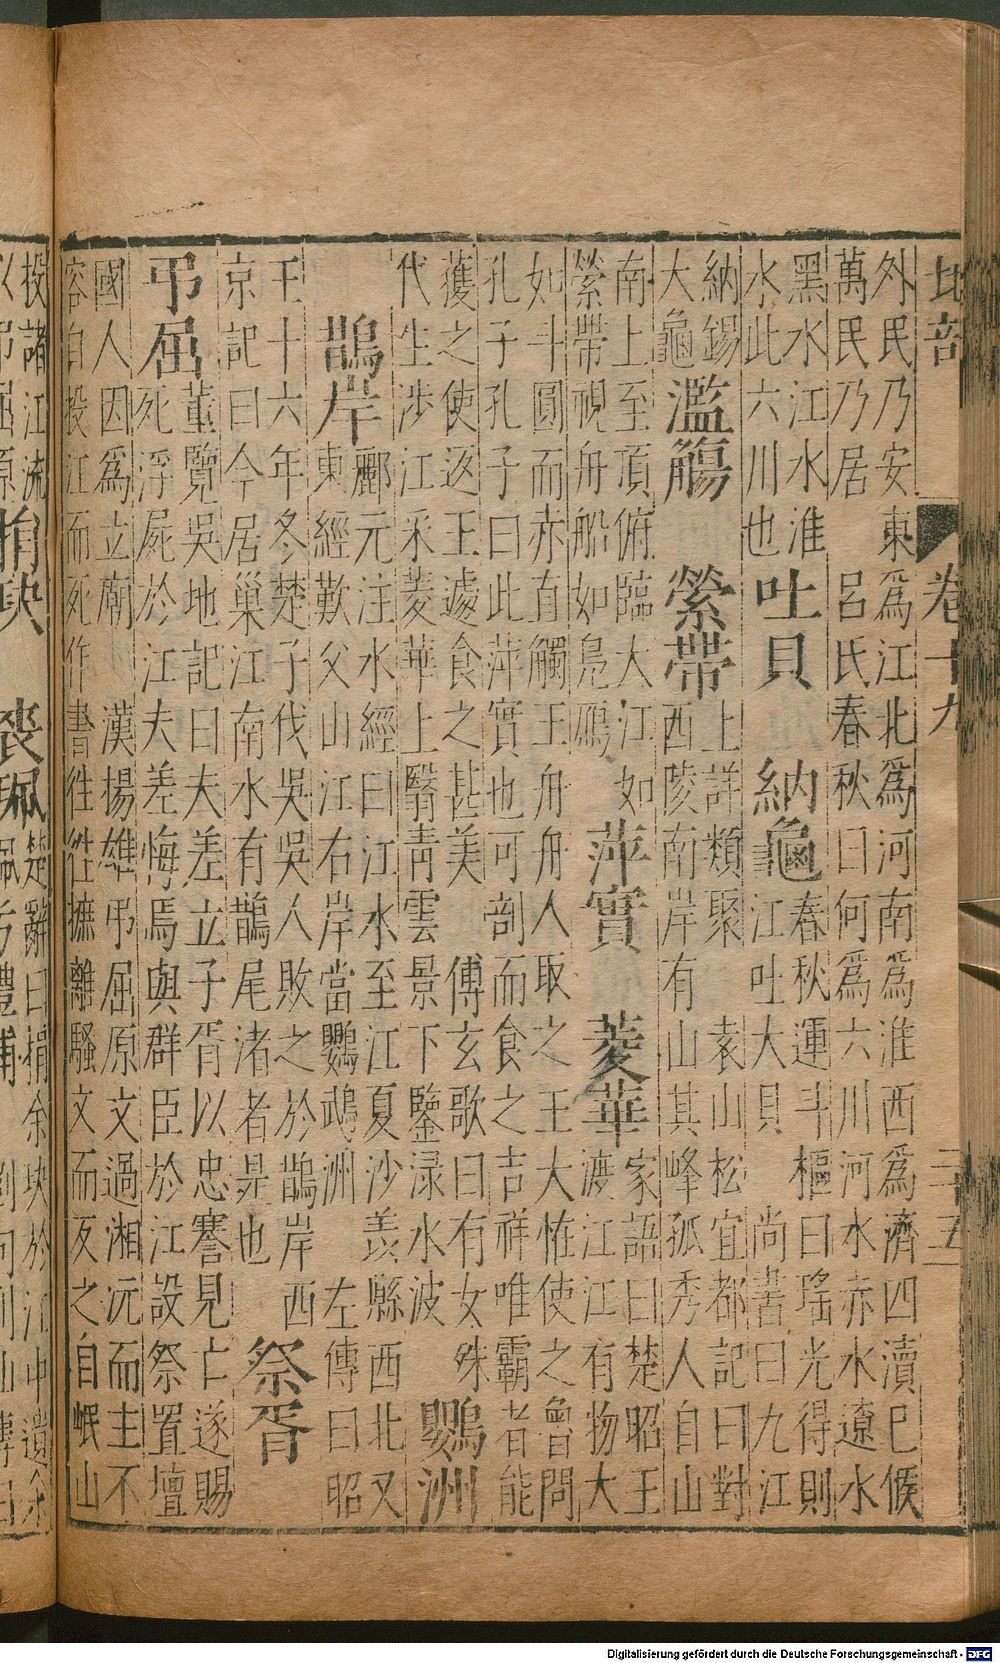 地部 卷十九 二五
外民乃安東爲江北爲河南爲淮西爲濟四瀆已候
萬民乃居 呂氏春秋曰何爲六川河水赤水遼水
黑水江水淮
水此六川也
吐貝 納龜
春秋運斗樞曰瑤光得則
江吐大貝 尚書曰九江
納錫
大龜
濫觴 縈帶
上詳類聚 袁山松宜都記曰對
西陵南岸有山其峰孤秀人自山
南上至頂俯臨大江如
縈帶視舟船如鳧鴈
萍實 菱華
家語曰楚昭王
渡江江有物大
如斗圓而赤直觸王舟舟人取之王大恠使之魯問
孔子孔子曰此萍實也可剖而食之吉祥唯霸者能
獲之使返王遽食之甚美 傅玄歌曰有女殊
代生涉江采菱華上翳靑雲景下鑒淥水波
鸚洲
酈元注水經曰江水至江夏沙羨縣西北又
東經歎父山江右岸當鸚鵡洲 左傳曰昭
鵲岸
王十六年冬楚子伐吳吳人敗之於鵲岸 西
京記曰今居巢江南水有鵲尾渚者是也
祭胥
董覽吳地記曰夫差立子胥以忠謇見亡遂賜
死浮屍於江夫差悔焉與群臣於江設祭置壇
弔屈
國人因爲立廟 漢揚雄弔屈原文過湘沅而主不
容自投江而死作書徃徃摭離騷文而反之自岷山
投諸江流
以弔屈原
捐玦 喪珮
楚辭曰捐余玦於江中遺余
Digitalisierung gefördert durch die Deutsche Forschungsgemeinschaft - DFG